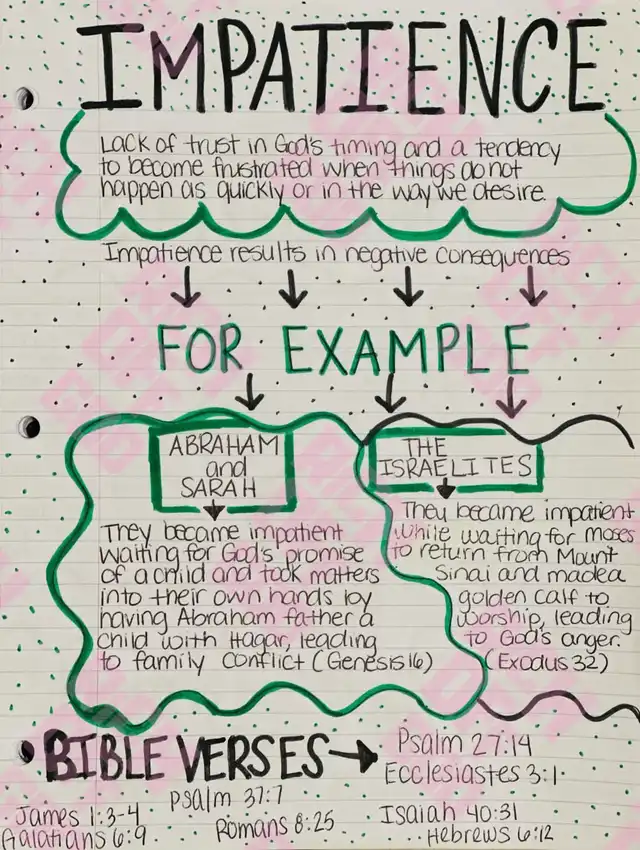 IMPATIENCE
Lack of trust in God's timing and a tendency
to become frustrated when things do not
happen as quickly or in the way we desire.
Impatience results in negative consequences
FOR EXAMPLE
ABRAHAM
and
SARAH
They became impatient
waiting for God's promise
of a child and took matters
into their own hands by
having Abraham father a
child with Hagar, leading
to family conflict (Genesis 16)
THE
ISRAELITES
They became impatient
while waiting for moses
to return from Mount
Sinai and made a
golden calf to
worship, leading
to God's anger.
(Exodus 32)
BIBLE VERSES
Psalm 27:14
Ecclesiastes 3:1
Psalm 37:7
James 1:3-4
Galatians 6:9
Romans 8:25
Isaiah 40:31
Hebrews 6:12